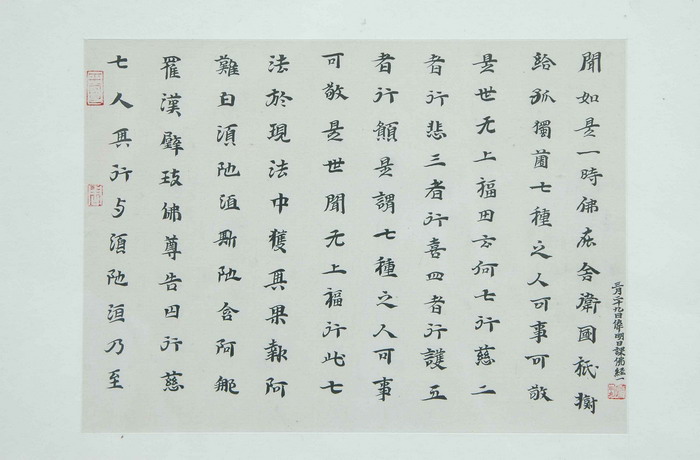 聞如是一時佛在舍衛國祇樹
給孤獨園七種之人可事可敬
是世无上福田云何七行慈二
者行悲三者行喜四者行護五
者行願是謂七種之人可事
可敬是世聞无上福行此七
法於現法中獲其果報阿
難白須陀洹斯陀含阿那
羅漢辟支佛尊告曰行慈
七人其行与須陀洹乃至
三月二十九日偉明日課佛經一